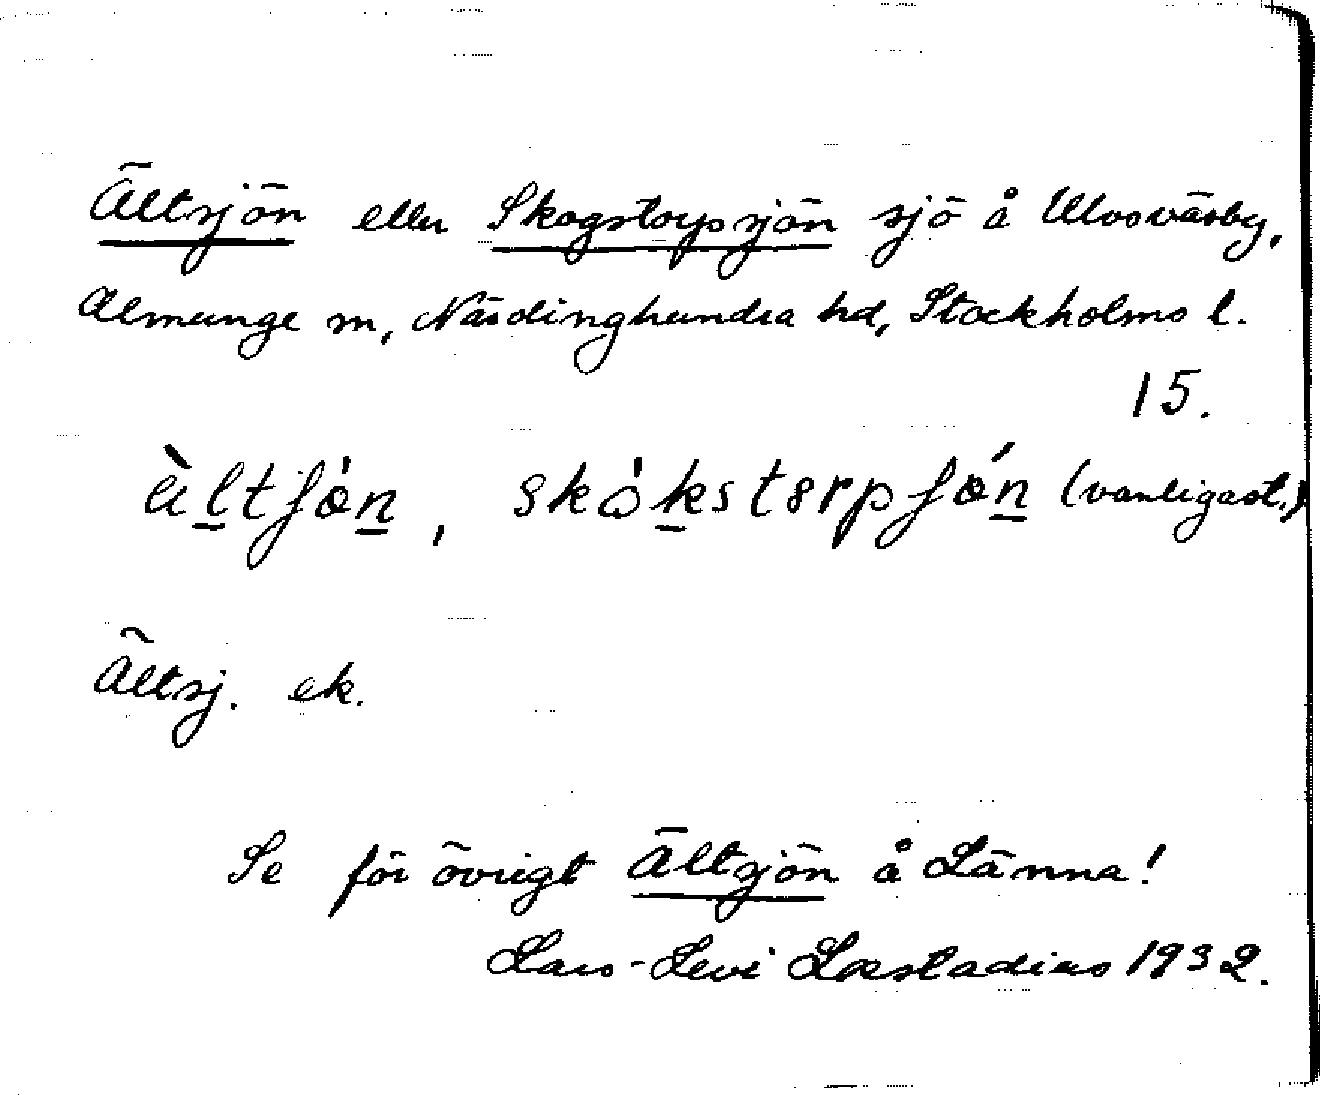 Ältsjön eller Skogstorpsjön sjö å Ulvsväsby,
Almunge sn, Närdinghundra hd, Stockholms l.
15.
ältʃǿn, skȯkstɵrpʃǿn (vanligast.)
Ältsj. ek.
Se för övrigt Ältsjön å Länna!
Lars-Levi Læstadius 1932.